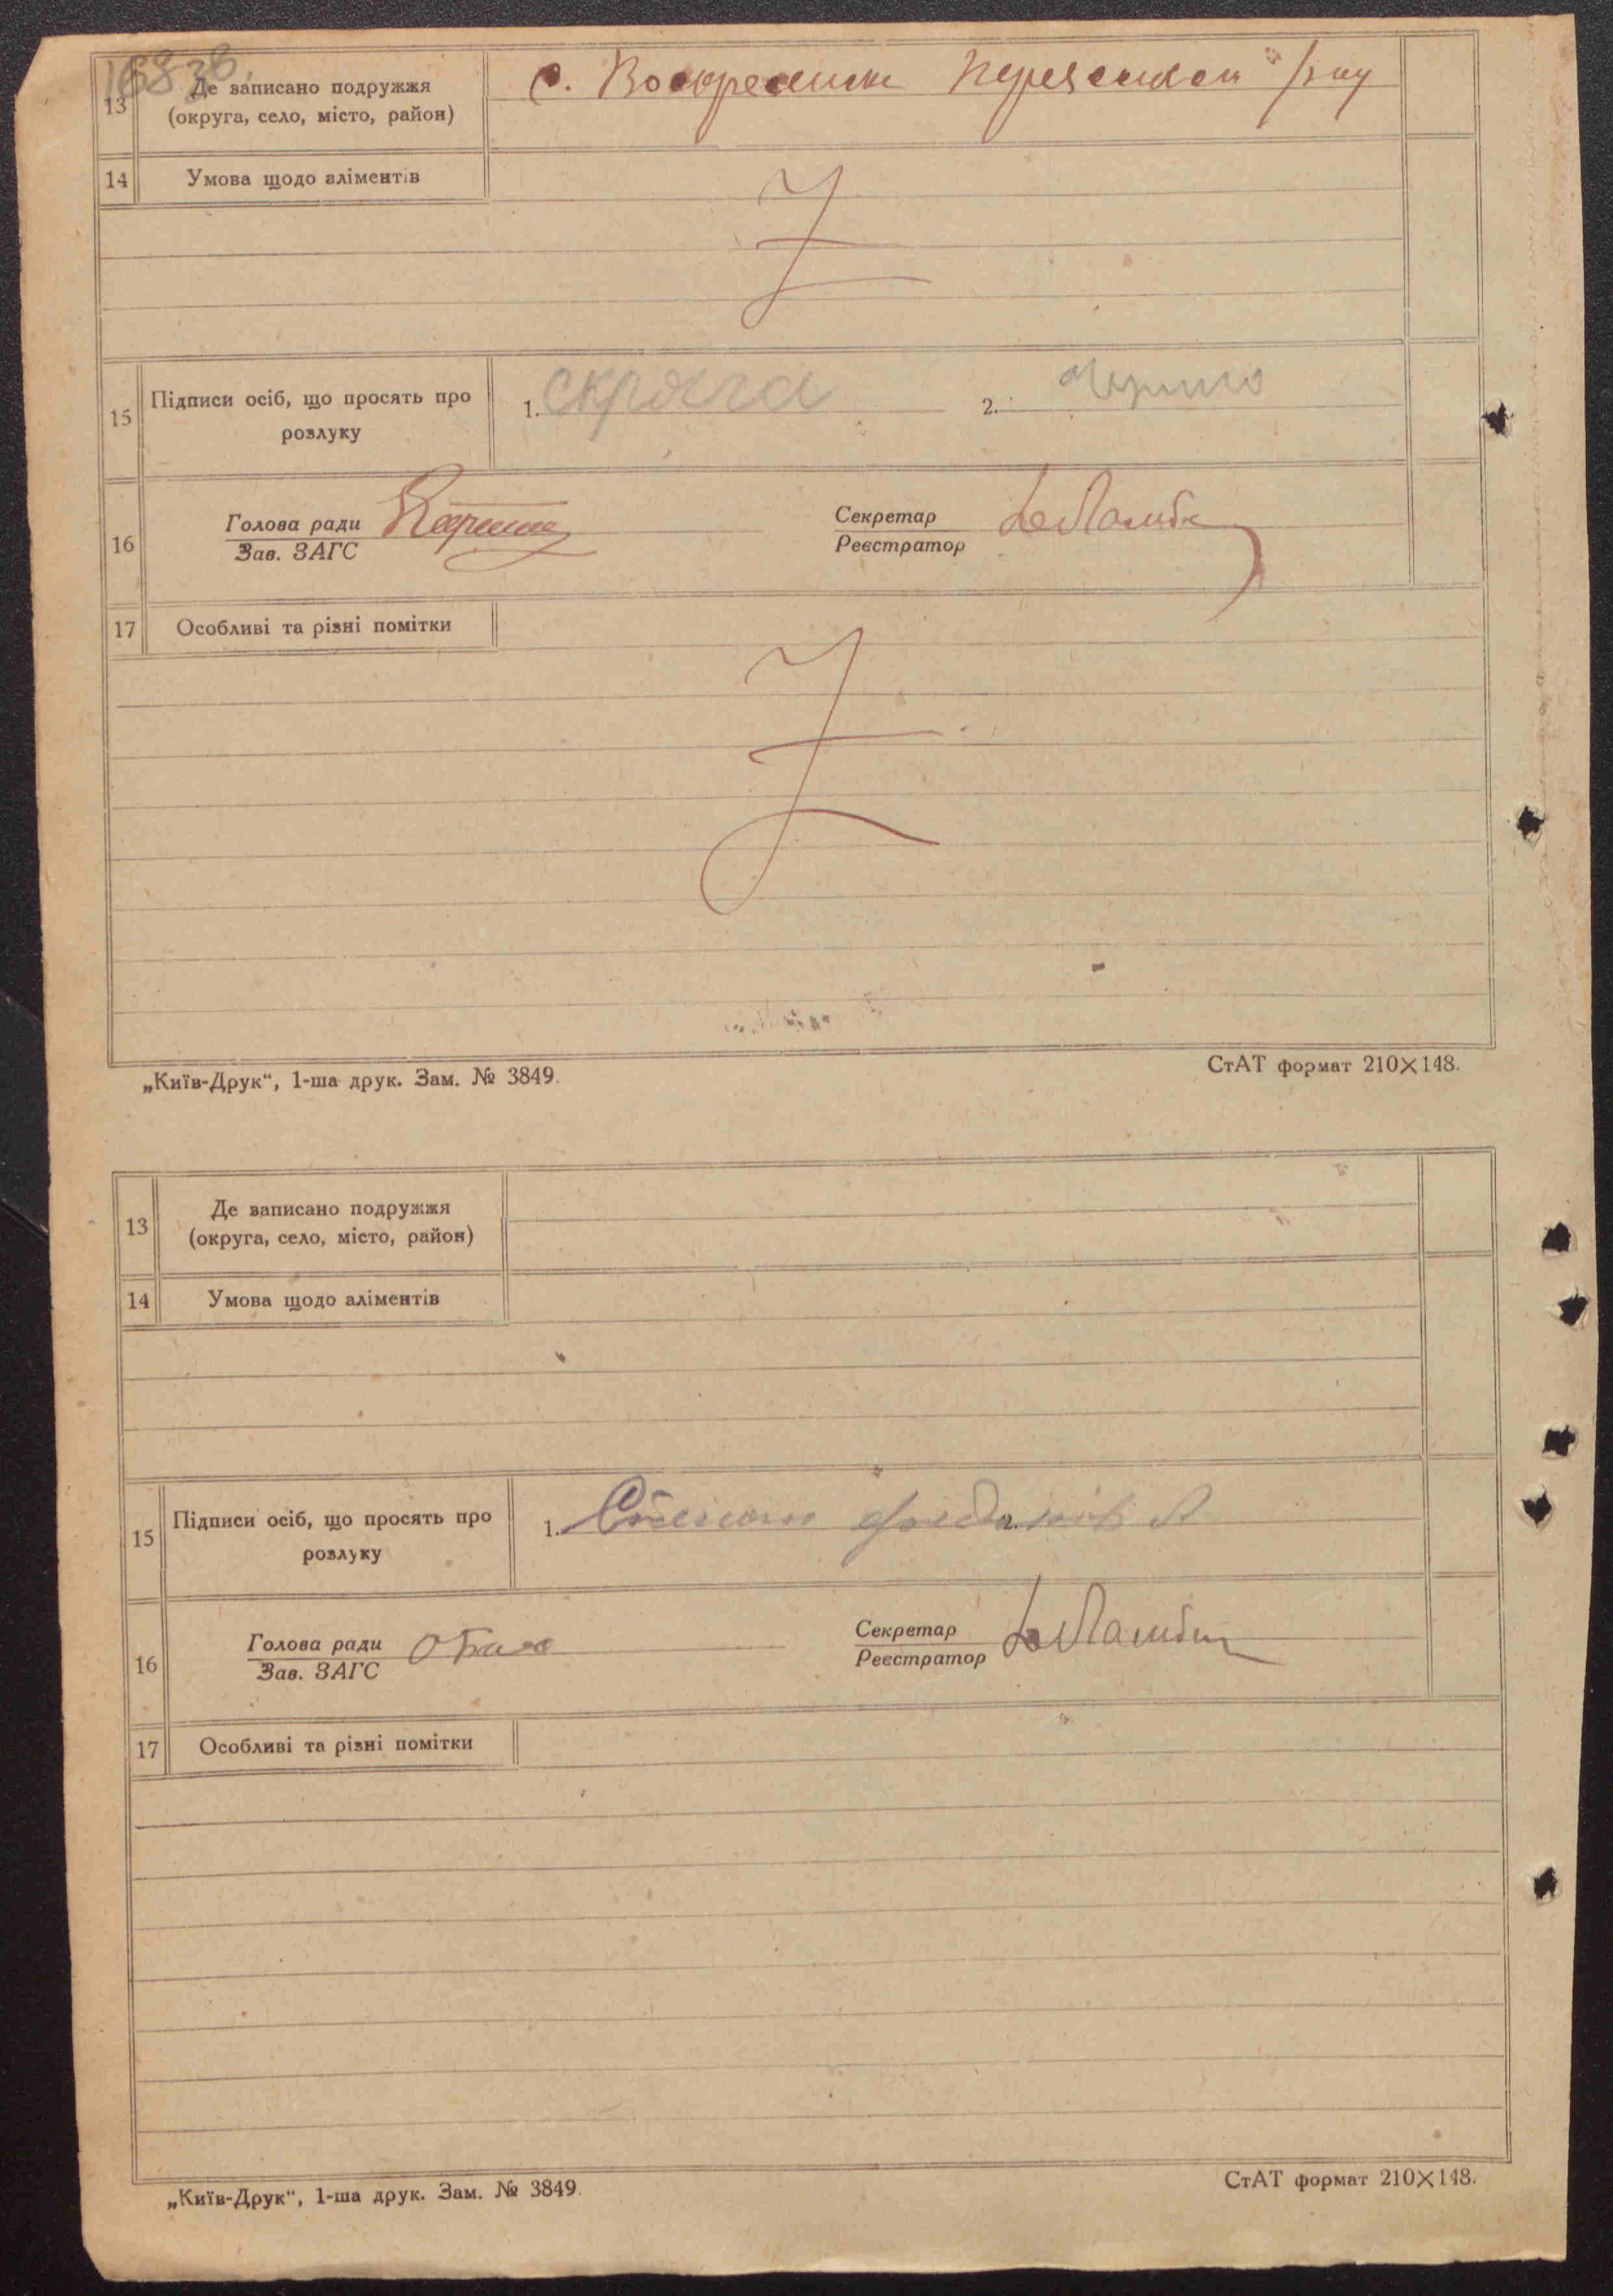 16838
13
Де записано подружжя
(округа, село, місто, район)
с.
14
Умова щодо аліментів
15
Підписи осіб, що просять про
розлуку
1. скряга
2.
16
Голова ради
Зав. ЗАГС
Секретар
Реєстратор
17
Особливі та різні помітки
„Київ-Друк“, 1-ша друк. Зам. № 3849.
СтАТ формат 210×148.
13
Де записано подружжя
(округа, село, місто, район)
14
Умова щодо аліментів
15
Підписи осіб, що просять про
розлуку
1.
2.
16
Голова ради
Зав. ЗАГС
Секретар
Реєстратор
17
Особливі та різні помітки
„Київ-Друк“, 1-ша друк. Зам. № 3849.
СтАТ формат 210×148.